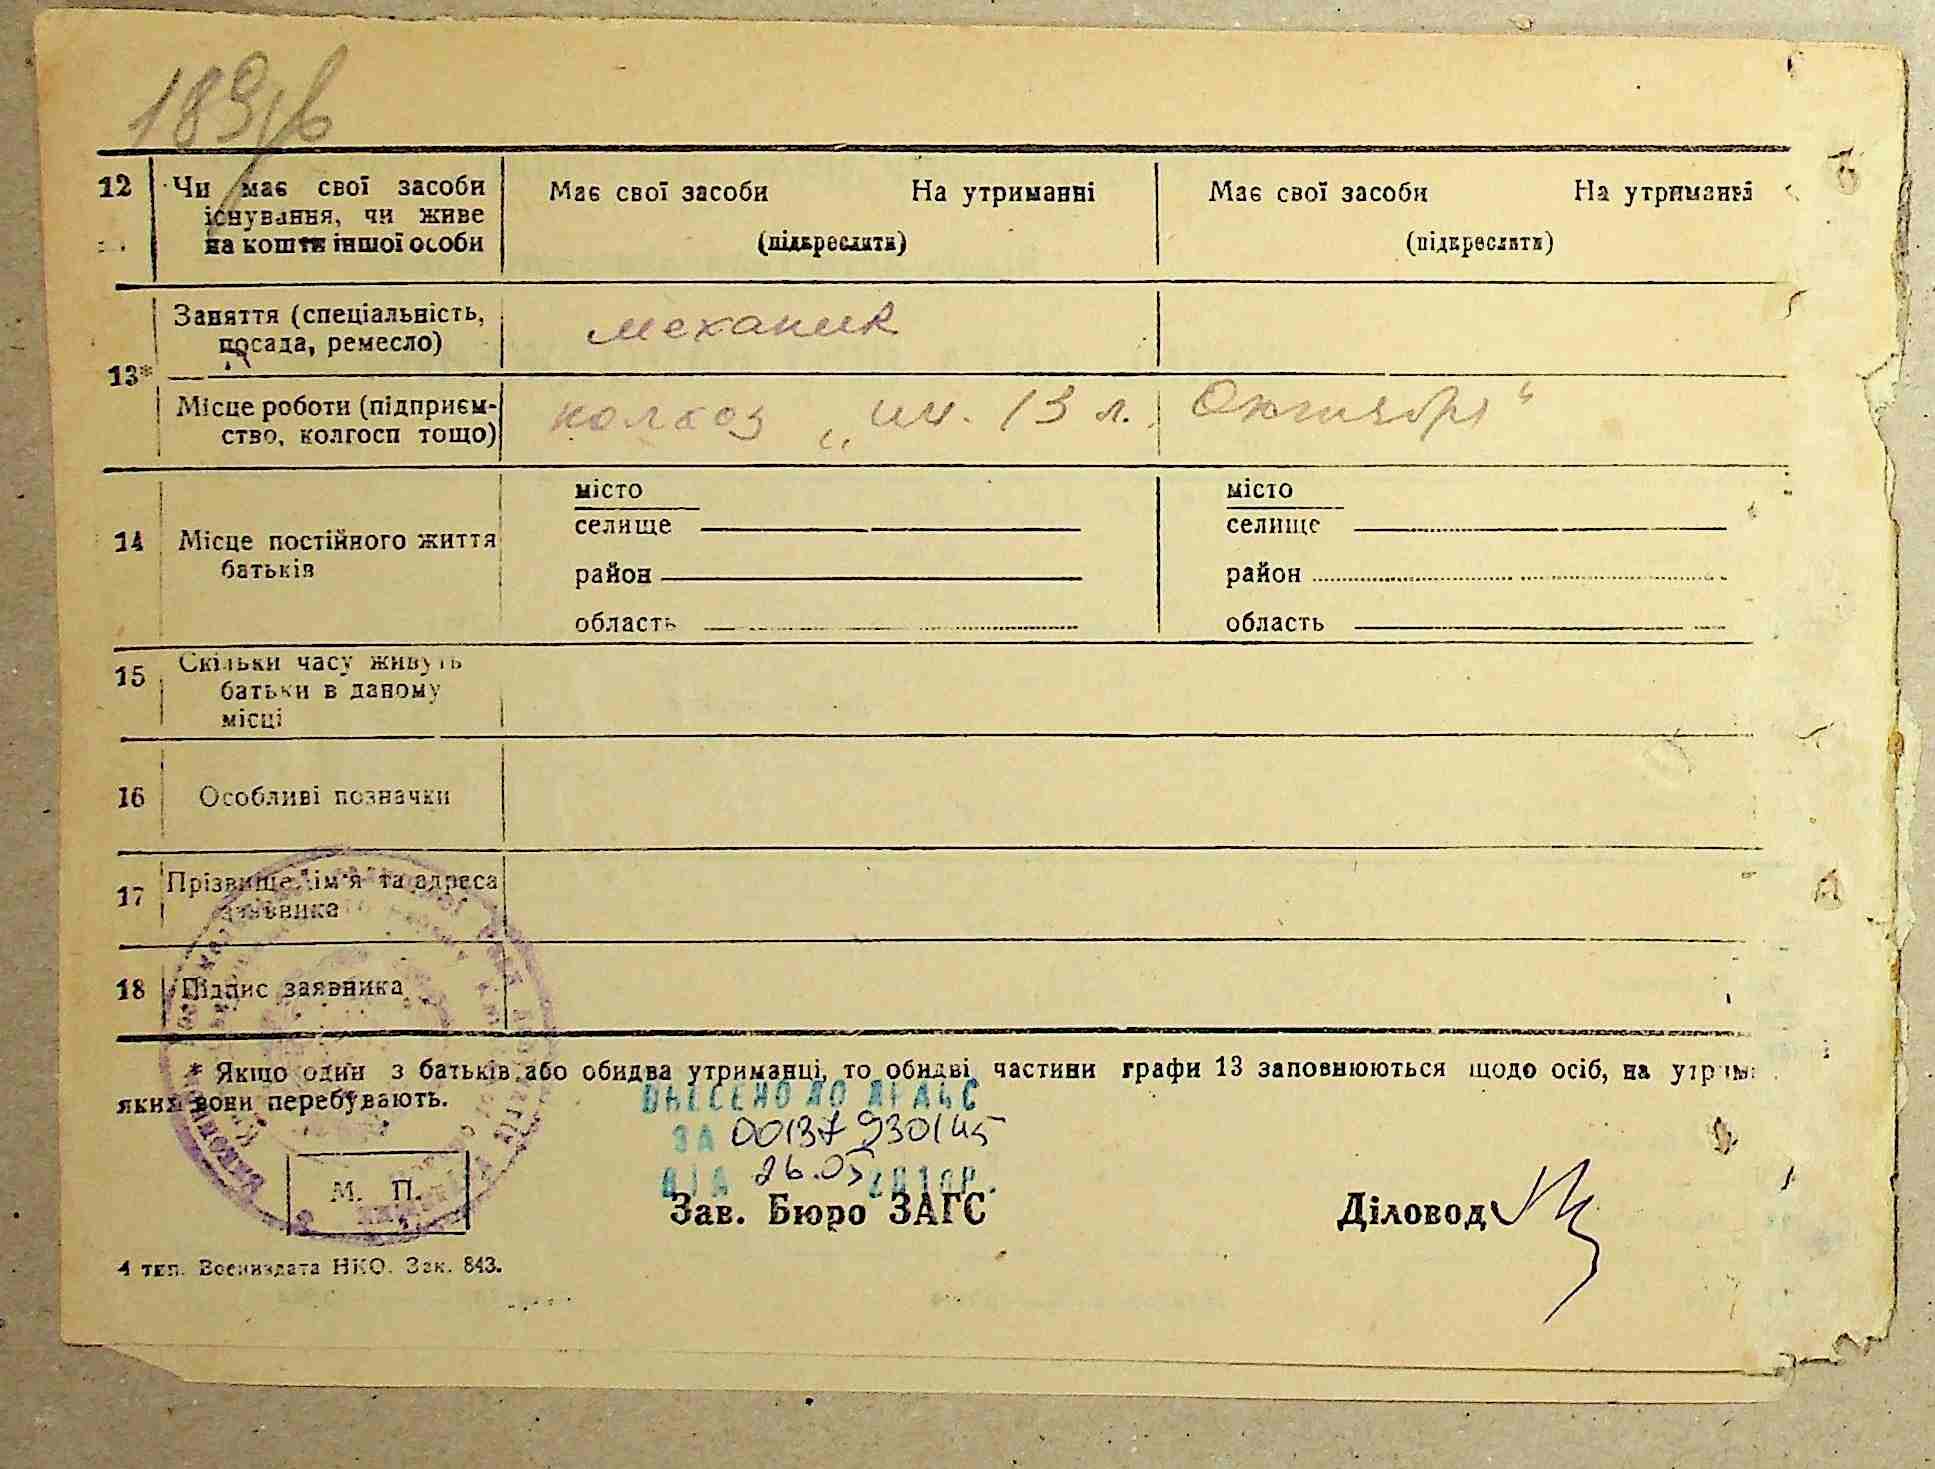 189
12 Чи має свої засоби існування, чи живе на кошти іншої особи
Має свої засоби На утриманні
(підкреслити)
Має свої засоби На утриманні
(підкреслити)
13*
Заняття (спеціальність, посада, ремесло)
механик
Місце роботи (підприєм-
ство, колгосп тощо)
колхоз „им. 13 л. Октября"
14 Місце постійного життя
батьків
місто
селище
район
область
місто
селище
район
область
15 Скільки часу живуть
батьки в даному
місці
16 Особливі позначки
17 Прізвище, ім'я та адреса
заявника
18 Підпис заявника
* Якщо один з батьків або обидва утриманці, то обидві частини графи 13 заповнюються щодо осіб, на утрим
яких вони перебувають.
ВНЕСЕНО ДО ДРАЦС
ЗА 00137930145
ВІД 26.05 2010р.
М. П.
Зав. Бюро ЗАГС
Діловод
4 тип. Воениздата НКО. Зак. 843.